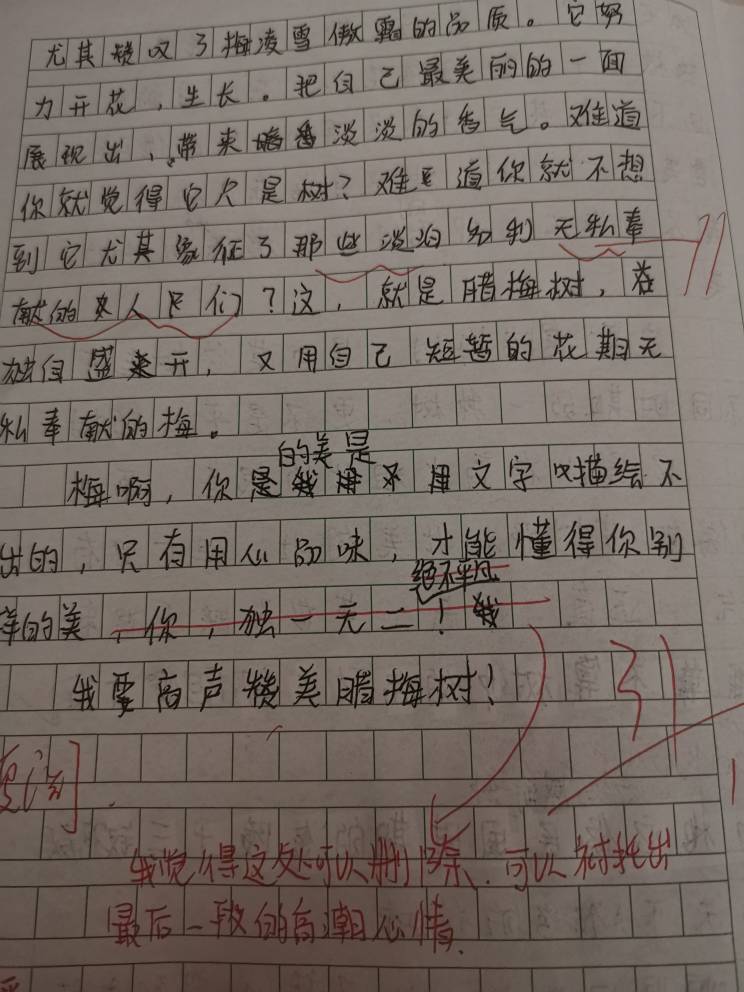 尤其赞叹了梅凌雪傲霜的品质。它努
力开花，生长。把自己最美丽的一面
展现出，带来暗香淡淡的香气。难道
你就觉得它只是树？难道你就不想
到它尤其象征了那些淡泊名利无私奉
献的人民们？这，就是腊梅树，在
独自盛开，又用自己短暂的花期无
私奉献的梅。
的美是
梅啊，你是用文字描绘不
出的，只有用心品味，才能懂得你别
绝不平凡
样的美，你，独一无二！
我要高声赞美腊梅树！
我觉得这处可以删除，可以衬托出
最后一段的高潮心情